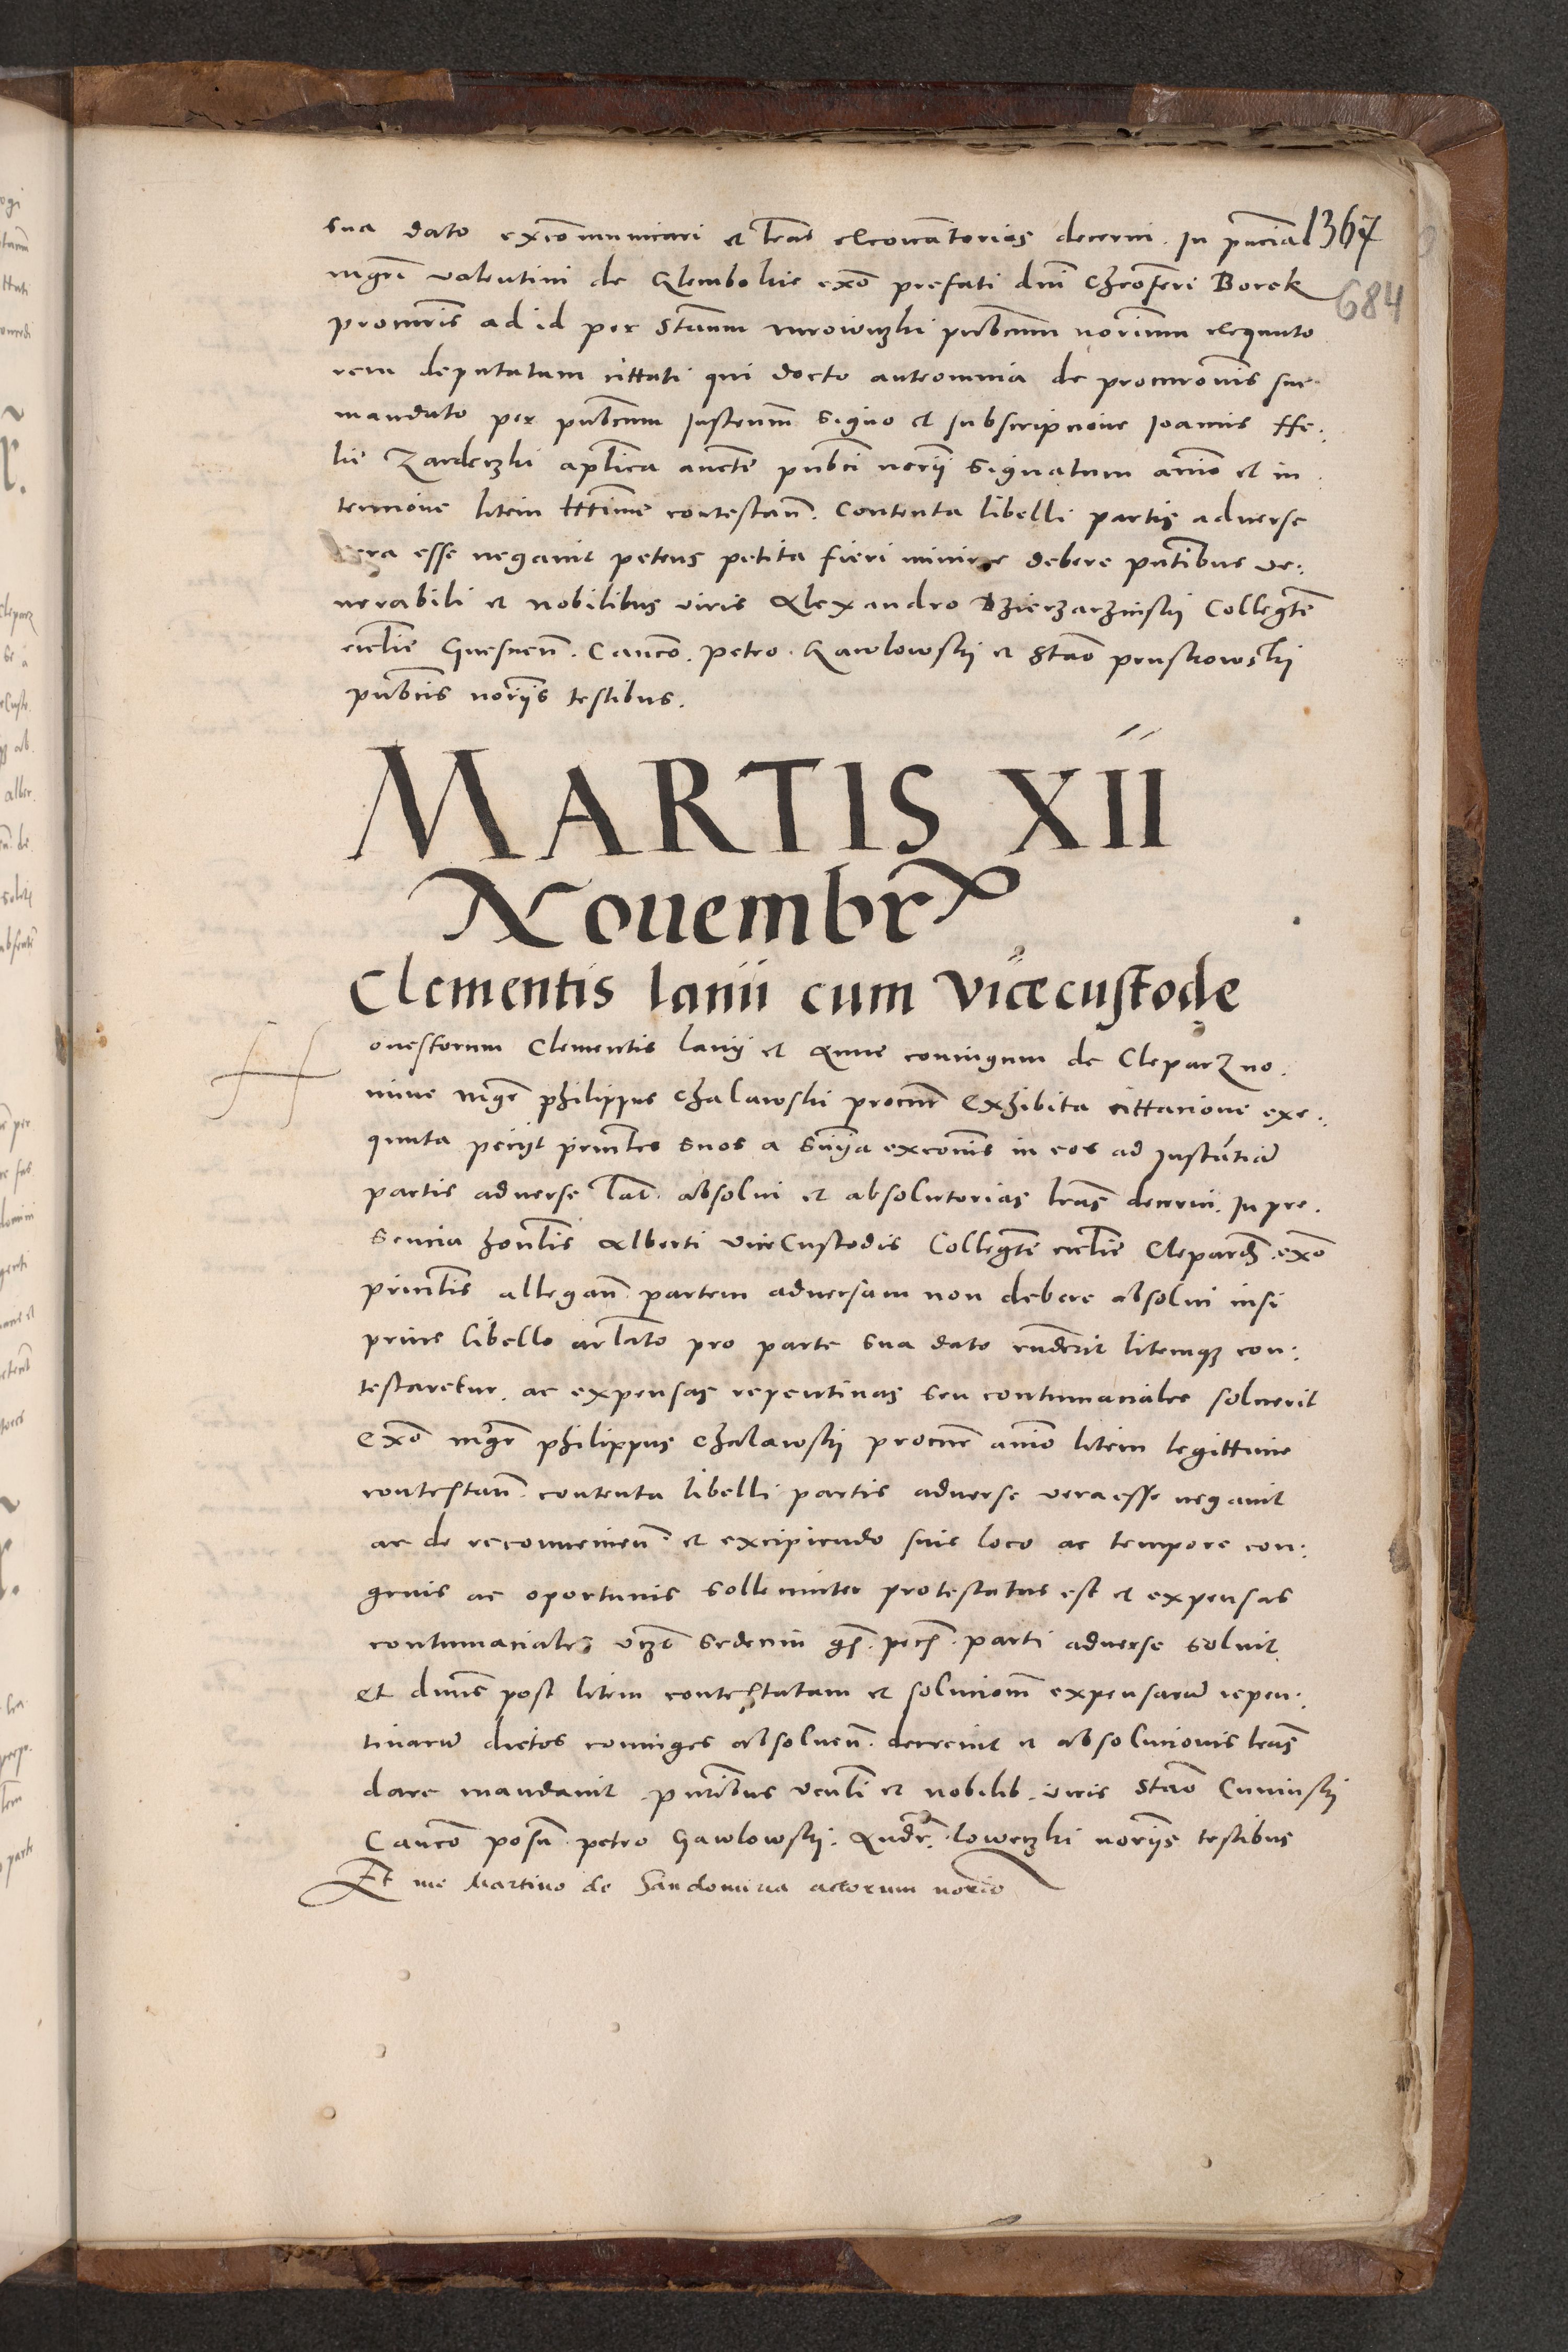 sua dato excõmunicari et lr̃as excõicatorias decerni. In pñcia 1367
mgr̃i Valentini de Clembokie exõ prefati dñi Chrõferi Borek 684
procurĩs ad id per Stanum mrowiczki publicum norium exequuto
rem deputatum cittati qui docto anteomnia de procurõnis sue
mandato per publicum Instrum̃ signo et subscripcione Ioannis ffe:
lie Zardeczki aplica aucte publici norij signatum animo et in
tencione litem lttime contestan̄. Contenta libelli partis adverse
vera esse negavit petens petita fieri minime debere pñtibus ve:
nerabili et nobilibus viris Alexandro Dzierzarzinskij Collegte
ecclie Gnesnen̄. Canco. petro. Gawlowskij et Stao pruskowskij
publicis norijs testibus.
MARTIS XII
Nouembr
Clementis lanii cum vicecustode
Honestorum Clementis lanij et Anne coniugum de Cleparz no.
mine mgr̃ philippus Chalawski procur̃ Exhibita cittacione exe:
quuta pecijt prin̄ctes suos a sn̄ija excõnis in eos ad Instantiã
partis adverse lat. absolvi et absolutorias lr̃as decerni. In pre.
sencia hon̄tis Alberti viceCustodis Collegte ecclie Clepardz. exõ
prin̄ctis allegan̄ partem adversam non debere absolvi nisi
prius libello arlato pro parte sua dato rñderit litemqz con:
testaretur. ac expensas repentinas seu contumaciales solverit
Exõ mgr̃ philippus Chalawskij procur̃ animo litem legittime
contestan̄. contenta libelli partis adverse vera esse negavit
ac de reconvenien̄ et excipiendo suis loco ac tempore con:
gruis ac oportunis sollemniter protestatus est et expensas
contumaciales vczt sedecim gs. pecs. parti adverse solvit
Et dnus post litem contestatam et soluciom expensarũ repen:
tinarũ dictos coniuges absolven̄. decrevit et absolucionis lr̃as
dare mandavit. pñtibus venli et nobilib. viris Stao Cuninskij
Canco posn̄. petro Gawlowskij. Andr. Loweczki norijs testibus
Et me Martino de Sandomiria actorum norio